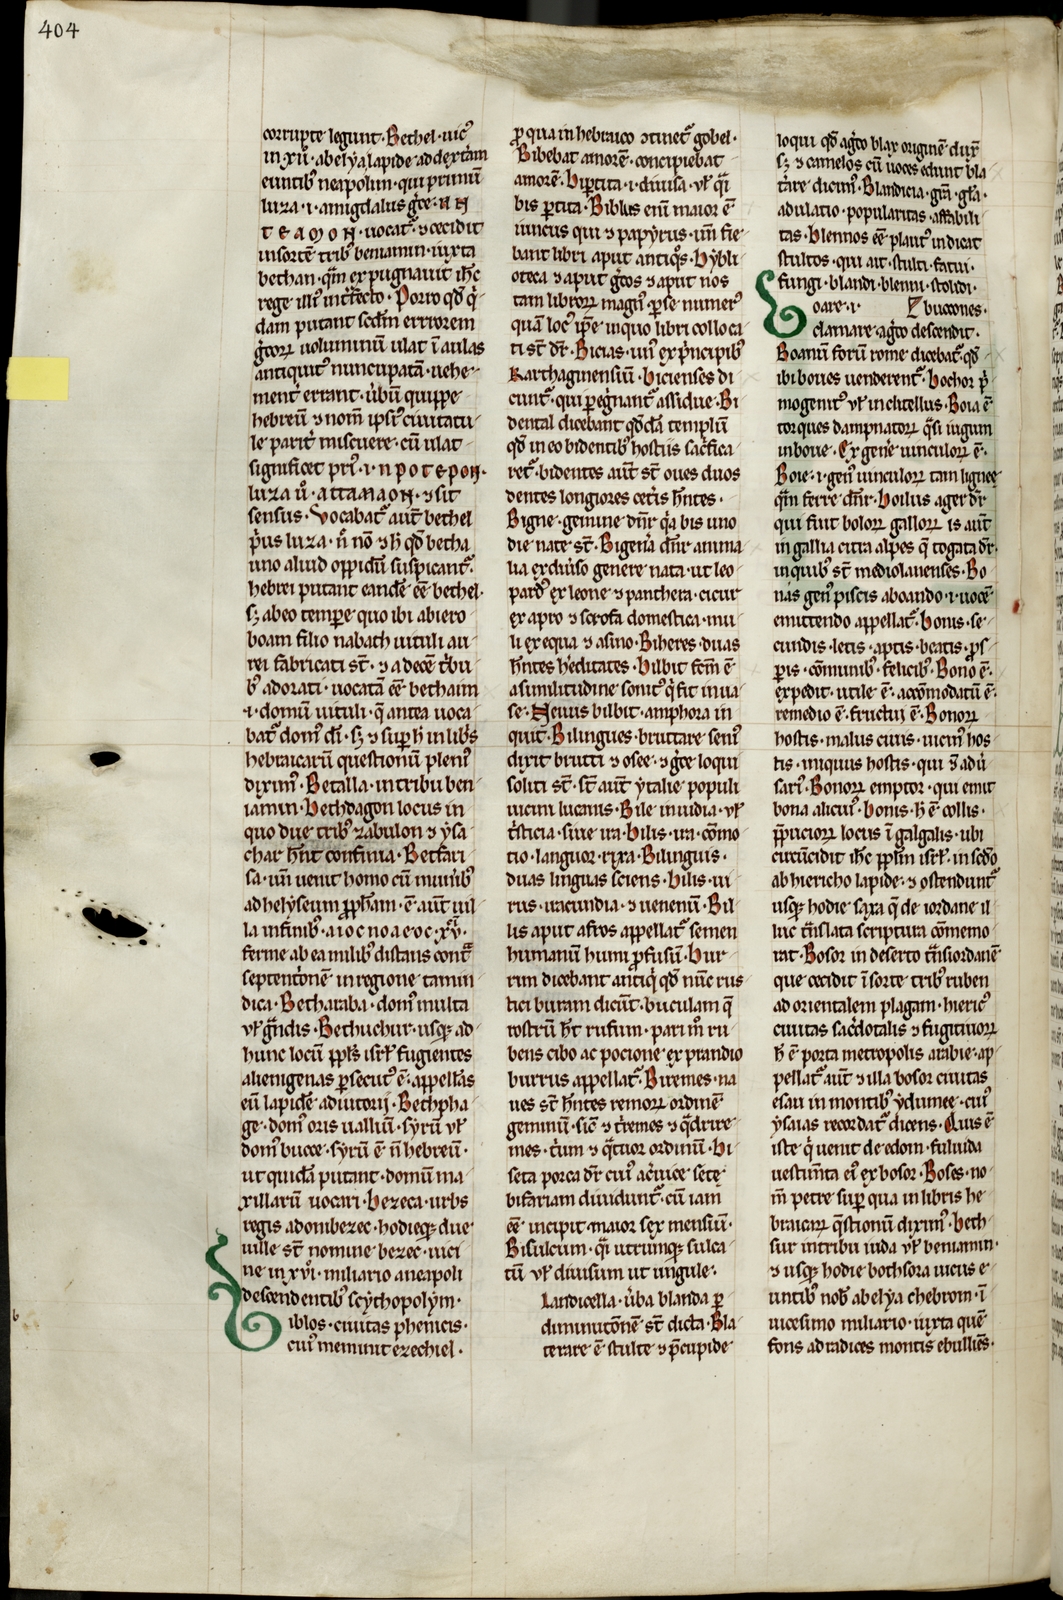 404
corrupte legunt · Bethel · uic᷒
in · xii · ab elẏa lapide ad dext̾am
euntib᷒ neapolim · qui primū
luza · i · amigdalus g̾ce · ΑΗ
ΤΕΑΜΟΗ · uocat᷑ · ⁊ cecidit
in sortē trib᷒ beniamin · iuxta
bethan · q̄m expugnauit ih̄c
rege illi᷒ int̾fecto · Porro qd̄ q̾
dam putant scd̄m errorem
g̾coꝝ uoluminū ulat ī aulas
antiquit᷒ nuncupatā · uehe
ment̾ errant · ūbū quippe
hebreū ⁊ nom̄ ipsi᷒ ciuitatu
le parit̾ miscuere · cū ulat
significet pri᷒ · i · ΗΡΟΤΕΡΟΗ ·
luza ů · ΑΤΤΑΜΑΟΗ · ⁊ sit
sensus · Vocabat᷑ aut̄ bethel
p̾us luza · n̄ nō ⁊ h̄ qd̄ becha
uno aliud oppidū suspicant᷑
hebrei putant eandē eē bethel ·
sꝫ ab eo tempe quo ibi a biero
boam filio nabath uituli au
rei fabricati st̄ · ⁊ a decē t̾bu
b᷒ adorati · uocatā eē bethaun
· i · domū uituli · q̄ antea uoca
bat᷑ dom᷒ dī · sꝫ ⁊ sup̄ h̄ in lib̾s
hebraicarū questionū pleni᷒
dixim᷒ · Betalla · in tribu ben
iamin · Bethdagon locus in
quo due trib᷒ zabulon ⁊ ẏsa
char hn̄t confinia · Betfari
sa · un̄ uenit homo cū munib᷒
ad helẏseum ꝓph̄am · ē aut̄ uil
la in finib᷒ · · xv̾ ·
ferme ab ea milib᷒ distans cont̾
septent̾onē in regione tamin
dica · Betharaba · dom᷒ multa
ul̄ g̾ndis · Bethuchur · usqꝫ ad
hunc locū ppl̄s isrl̄ fugientes
alienigenas ꝑsecut᷒ ē · appellās
eū lapidē adiutorij · Bethpha
ge · dom᷒ oris ualliū · sẏrū ul̄
dom᷒ bucce · sẏrū ē n̄ hebreū ·
ut quidā putant · domum ma
xillarū uocari · Bezeca · urbs
regis adonibezec · hodieqꝫ due
uille st̄ nomine bezec · uici
ne in xvi · miliario a neapoli
descendentib᷒ scẏthopolẏm ·
Biblos · ciuitas phenicis ·
cui᷒ meminit ezechiel ·
b
ꝓ qua in hebraico ↄtinet᷑ gobel ·
Bibebat amorē · concipiebat
amorē · Biꝑtita · i · diuisa · ul̄ q̾i
bis ꝑtita · Biblus enī maior ē
iuncus qui ⁊ papẏrus · un̄ fie
bant libri aput antiq̊s · Bẏbli
oteca ⁊ aput g̾cos ⁊ aput nos
tam libroꝝ magn᷒ ꝑ se numer᷒
quā loc᷒ ip̄e in quo libri colloca
ti st̄ dr̄ · Bicias · un᷒ ex p̾ncipib᷒
Karthaginensiū · Bicienses di
cunt᷑ · qui peg̾nant᷑ assidue · Bi
dental dicebant qd̄dā templū
qd̄ in eo bidentib᷒ hostiis sac̾fica
ret᷑ · bidentes aut̄ st̄ oues duos
dentes longiores cet̾is hn̄tes ·
Bigne · gemine dn̄r q̾a bis uno
die nate st̄ · Bigen̾a dn̄r anima
lia ex diuiso genere nata · ut leo
pard᷒ ex leone ⁊ panthera · cicur
ex apro ⁊ scrofa domestica · mu
li ex equa ⁊ asino · Biheres · duas
hn̄tes h̾editates · Bilbit · fcm̄ ē
a similitudine sonit᷒ q̾ fit in ua
se · Neuius bilbit · amphora in
quit · Bilingues · bruttare seni᷒
dixit brutti ⁊ osee · ⁊ g̾ce loqui
soliti st̄ · st̄ aut̄ ẏtalie populi
uicini lucanis · Bile inuidia · ul̄
t̾sticia · siue ira · Bilis · ira · cōmo
tio · languor · rixa · Bilinguis ·
duas linguas sciens · Bilis · ui
rus · iracundia · ⁊ uenenū · Bil
lis aput afros appellat᷑ semen
humanū humi ꝓfusū · Bur
rum dicebant antiq̾ qd̄ nūc rus
tici buram dicūt · buculam q̄
rostrū hꝫt rufum · pari m̊ ru
bens cibo ac pocione ex prandio
burrus appellat᷑ · Biremes · na
ues st̄ hn̄tes remoꝝ ordinē
geminū · sic̄ ⁊ t̾remes ⁊ q̾drire
mes · t̾um ⁊ q̾tuor ordinū · Bi
seta porca dr̄ cui᷒ ac̾uice sete
bifariam diuidunt᷑ · cū iam
eē incipit maior sex mensiū ·
Bisulcum · q̾i utrumqꝫ sulca
tū ul̄ diuisum ut ungule ·
Blandicella · ūba blanda ꝑ
diminutōnē st̄ dicta · Bla
terare ē stulte ⁊ p̄cupide
loqui qd̄ ag̾co blax originē dux̄
sꝫ ⁊ camelos cū uoces edunt bla
t̾are dicim᷒ · Blandicia · grā · gl̄a ·
adulatio · popularitas · affabili
tas · Blennos eē plaut᷒ indicat
stultos · qui ait · stulti · fatui ·
fungi · blandi · blenni · stolidi ·
Boare · i · buccones ·
clamare · ag̾co descendit ·
Boarium forū rome dicebat᷑ · qd̄
ibi boues uenderent᷑ · Bochor p̾
mogenit᷒ ul̄ in clitellus · Boia ē
torques dampnatoꝝ q̾si iugum
in boue · Ex gen̾e uinculoꝝ ē ·
Boie · i · gen᷒ uinculoꝝ tam lignee
q̄m ferre dn̄r · Boilus ager dr̄
qui fuit boloꝝ galloꝝ is aut̄
in gallia citra alpes q̄ togata dr̄ ·
in quib᷒ st̄ mediolanenses · Bo
nas gen᷒ piscis a boando · i · uocē
emittendo appellat᷑ · Bonis · se
cundis · letis · aptis · beatis · ꝓs
ꝑis · cōmunib᷒ · felicib᷒ · Bono ē ·
expedit · utile ē · accōmodatū ē ·
remedio ē · fructuj ē · Bonoꝝ
hostis · malus ciuis · uicin᷒ hos
tis · iniquus hostis · qui ⁊ adū
sari᷒ · Bonoꝝ emptor · qui emit
bona alicui᷒ · Bonis · h̄ ē collis ·
p̄puciorꝝ locus ī galgalis · ubi
circūcidit ih̄c ppl̄m isrl̄ · in scd̄o
ab hiericho lapide · ⁊ ostendunt᷑
usqꝫ hodie saxa q̄ de iordane il
luc t̾nslata scriptura cōmemo
rat · Bosor in deserto t̾nsiordanē
que cecidit ī sorte trib᷒ ruben
ad orientalem plagam · hieric᷒
ciuitas sac̾dotalis ⁊ fugitiuoꝝ
h̄ ē porta metropolis arabie · ap
pellat᷑ aut̄ ⁊ illa bosor ciuitas
esau in montib᷒ ẏdumee · cui᷒
ẏsaias recordat᷑ dicens · Quis ē
iste q̾ uenit de edom · fuluida
uestim̄ta ei᷒ ex bosor · Boses · no
m̄ petre sup qua in libris he
braicaꝝ q̄stionū dixim᷒ · Beth
sur in tribu iuda ul̄ beniamin ·
⁊ usqꝫ hodie bothsora uicus e
untib᷒ nob̄ ab elẏa chebrom · ī
uicesimo miliario · iuxta quē
fons ad radices montis ebulliēs ·